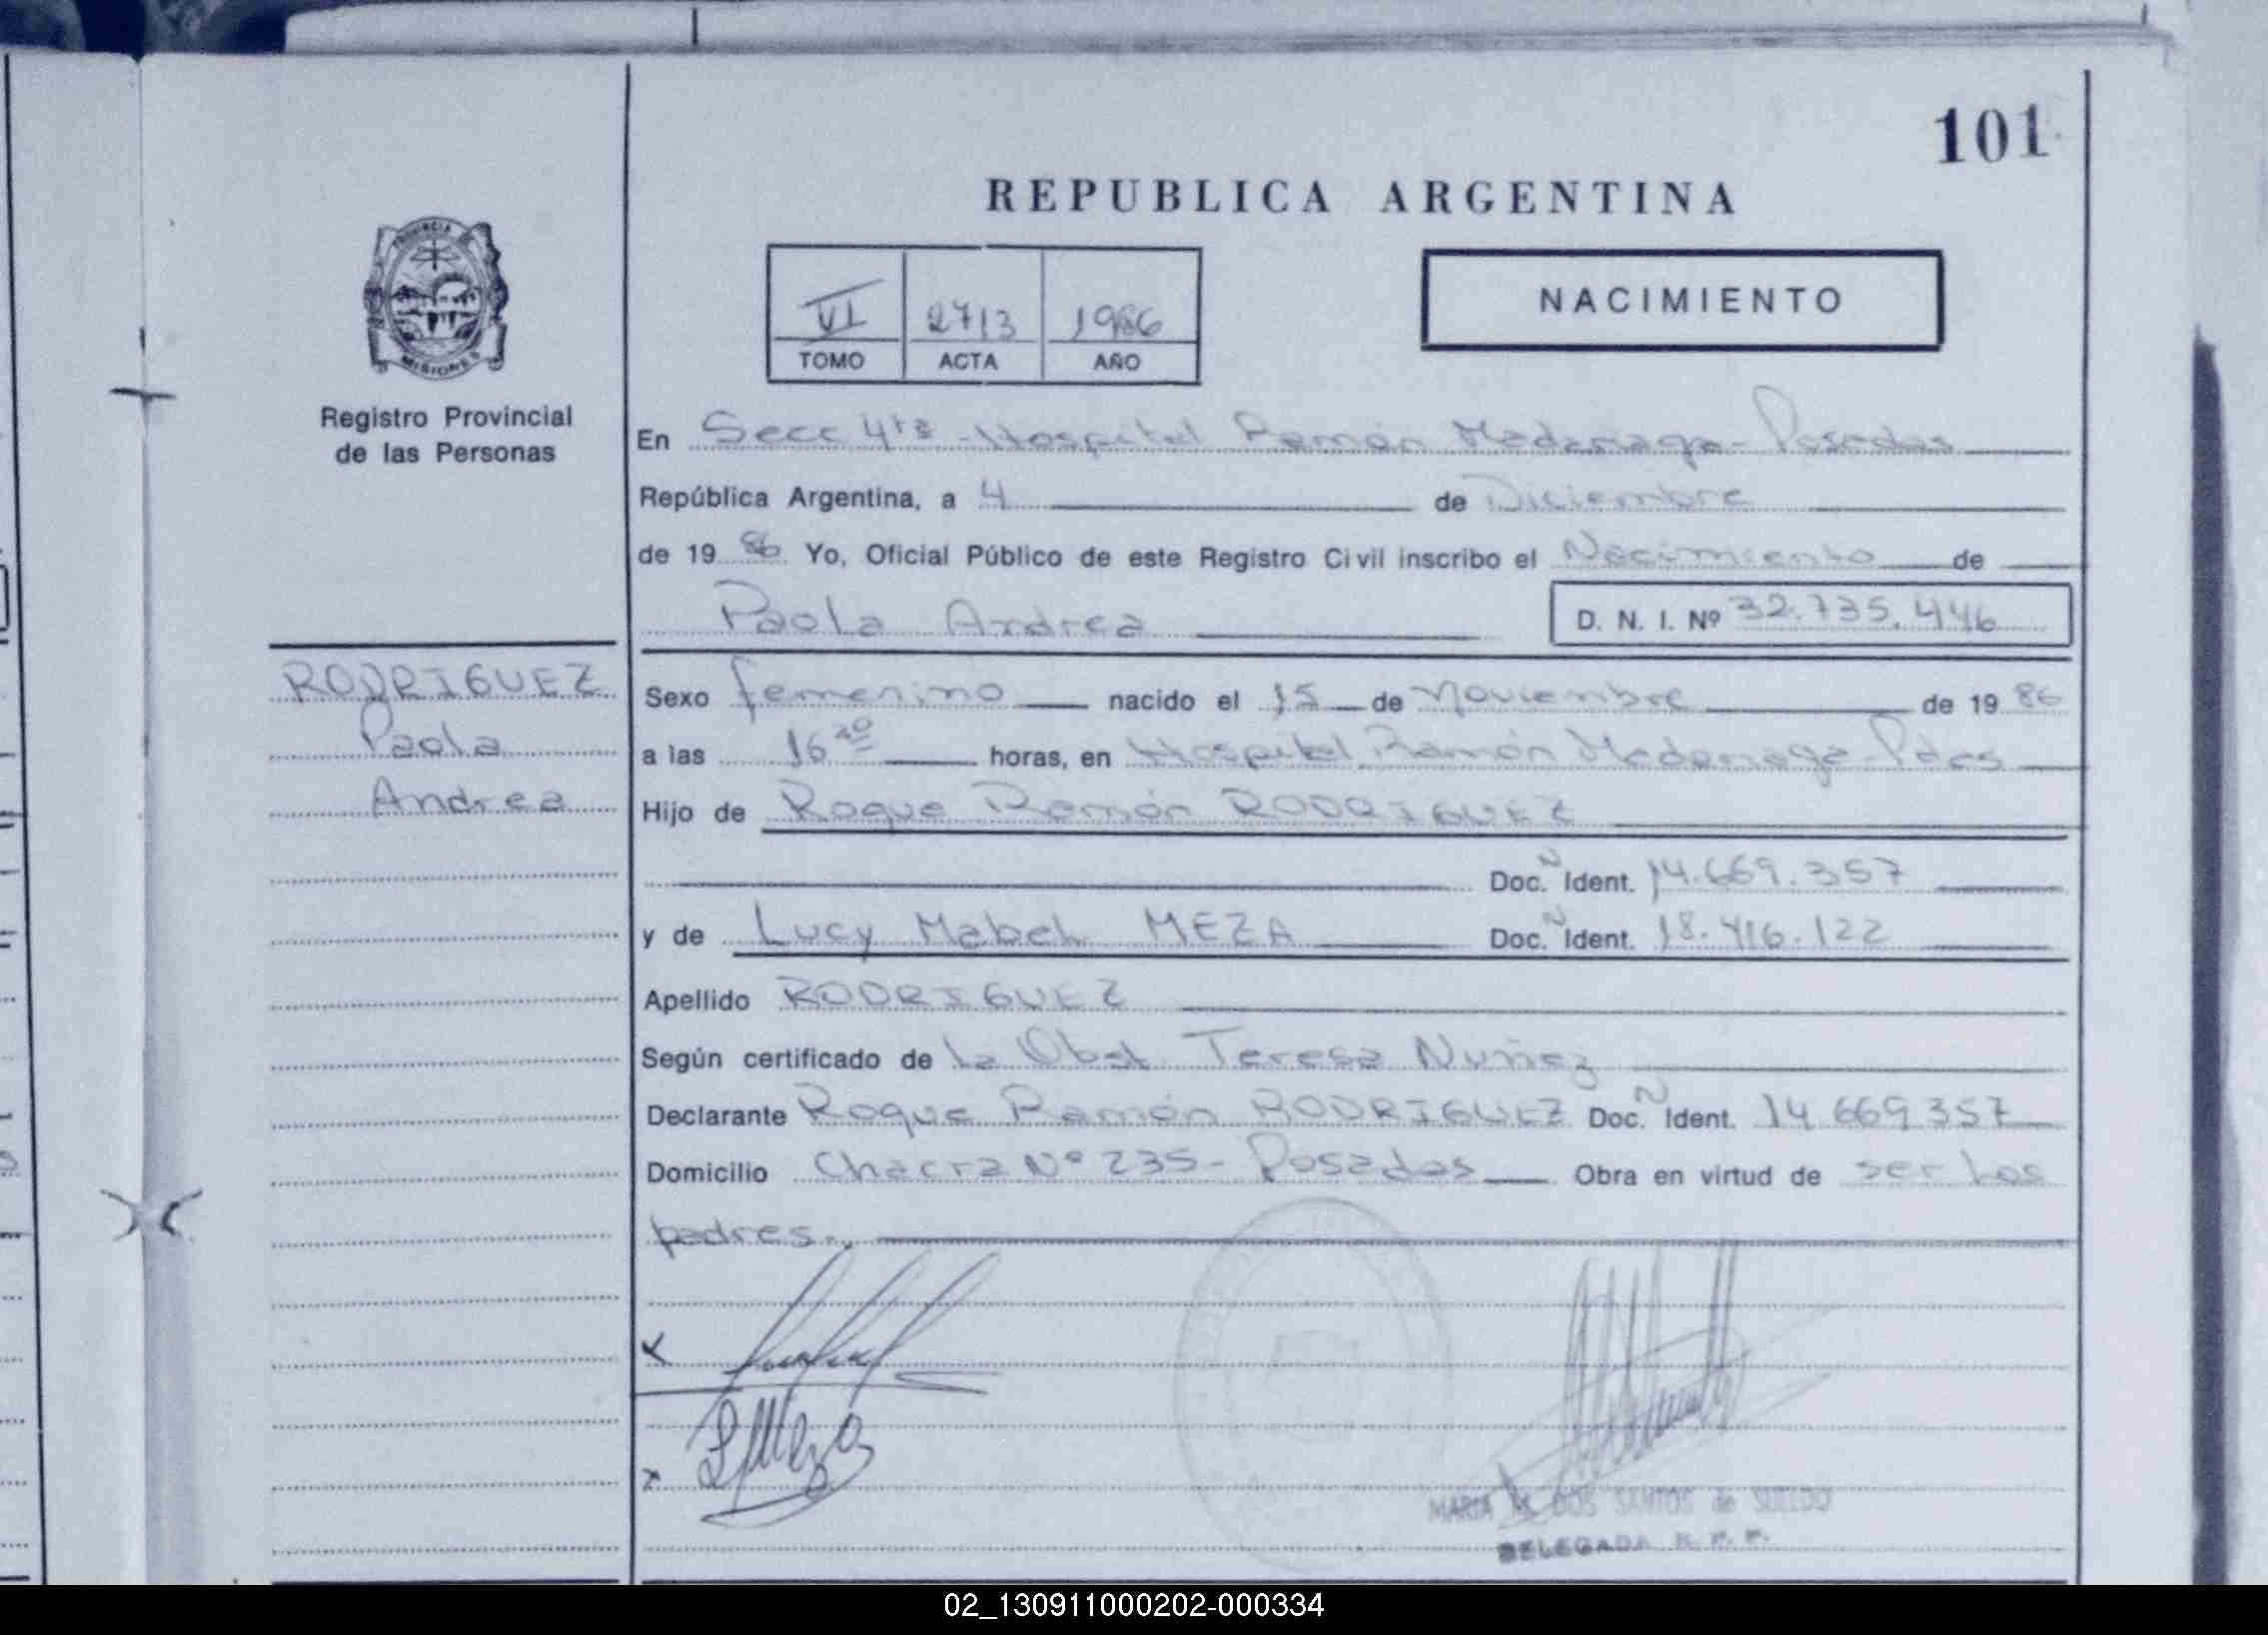 101
REPUBLICA ARGENTINA
VI 2713 1986
TOMO ACTA AÑO
NACIMIENTO
PROVINCIA DE
MISIONES
Registro Provincial
de las Personas
En Secc 4ta - Hospital Ramón Madariaga - Posadas
República Argentina, a 4 de Diciembre
de 19 86 Yo, Oficial Público de este Registro Civil inscribo el Nacimiento de
Paola Andrea D. N. I. Nº 32.735.446
RODRIGUEZ
Paola
Andrea
Sexo femenino nacido el 15 de Noviembre de 19 86
a las 16 horas, en Hospital Ramón Madariaga - Pdas
Hijo de Roque Ramón RODRIGUEZ
Doc. N Ident. 14.669.357
y de Lucy Mabel MEZA Doc. N Ident. 18.416.122
Apellido RODRIGUEZ
Según certificado de la Obst Teresa Nuñez
Declarante Roque Ramón RODRIGUEZ Doc. N Ident. 14 669 357
Domicilio Chacra Nº 235 - Posadas Obra en virtud de ser los
padres.,
LMeza
MARIA DOS SANTOS de SUELDO
DELEGADA R. P. P.
02_130911000202-000334